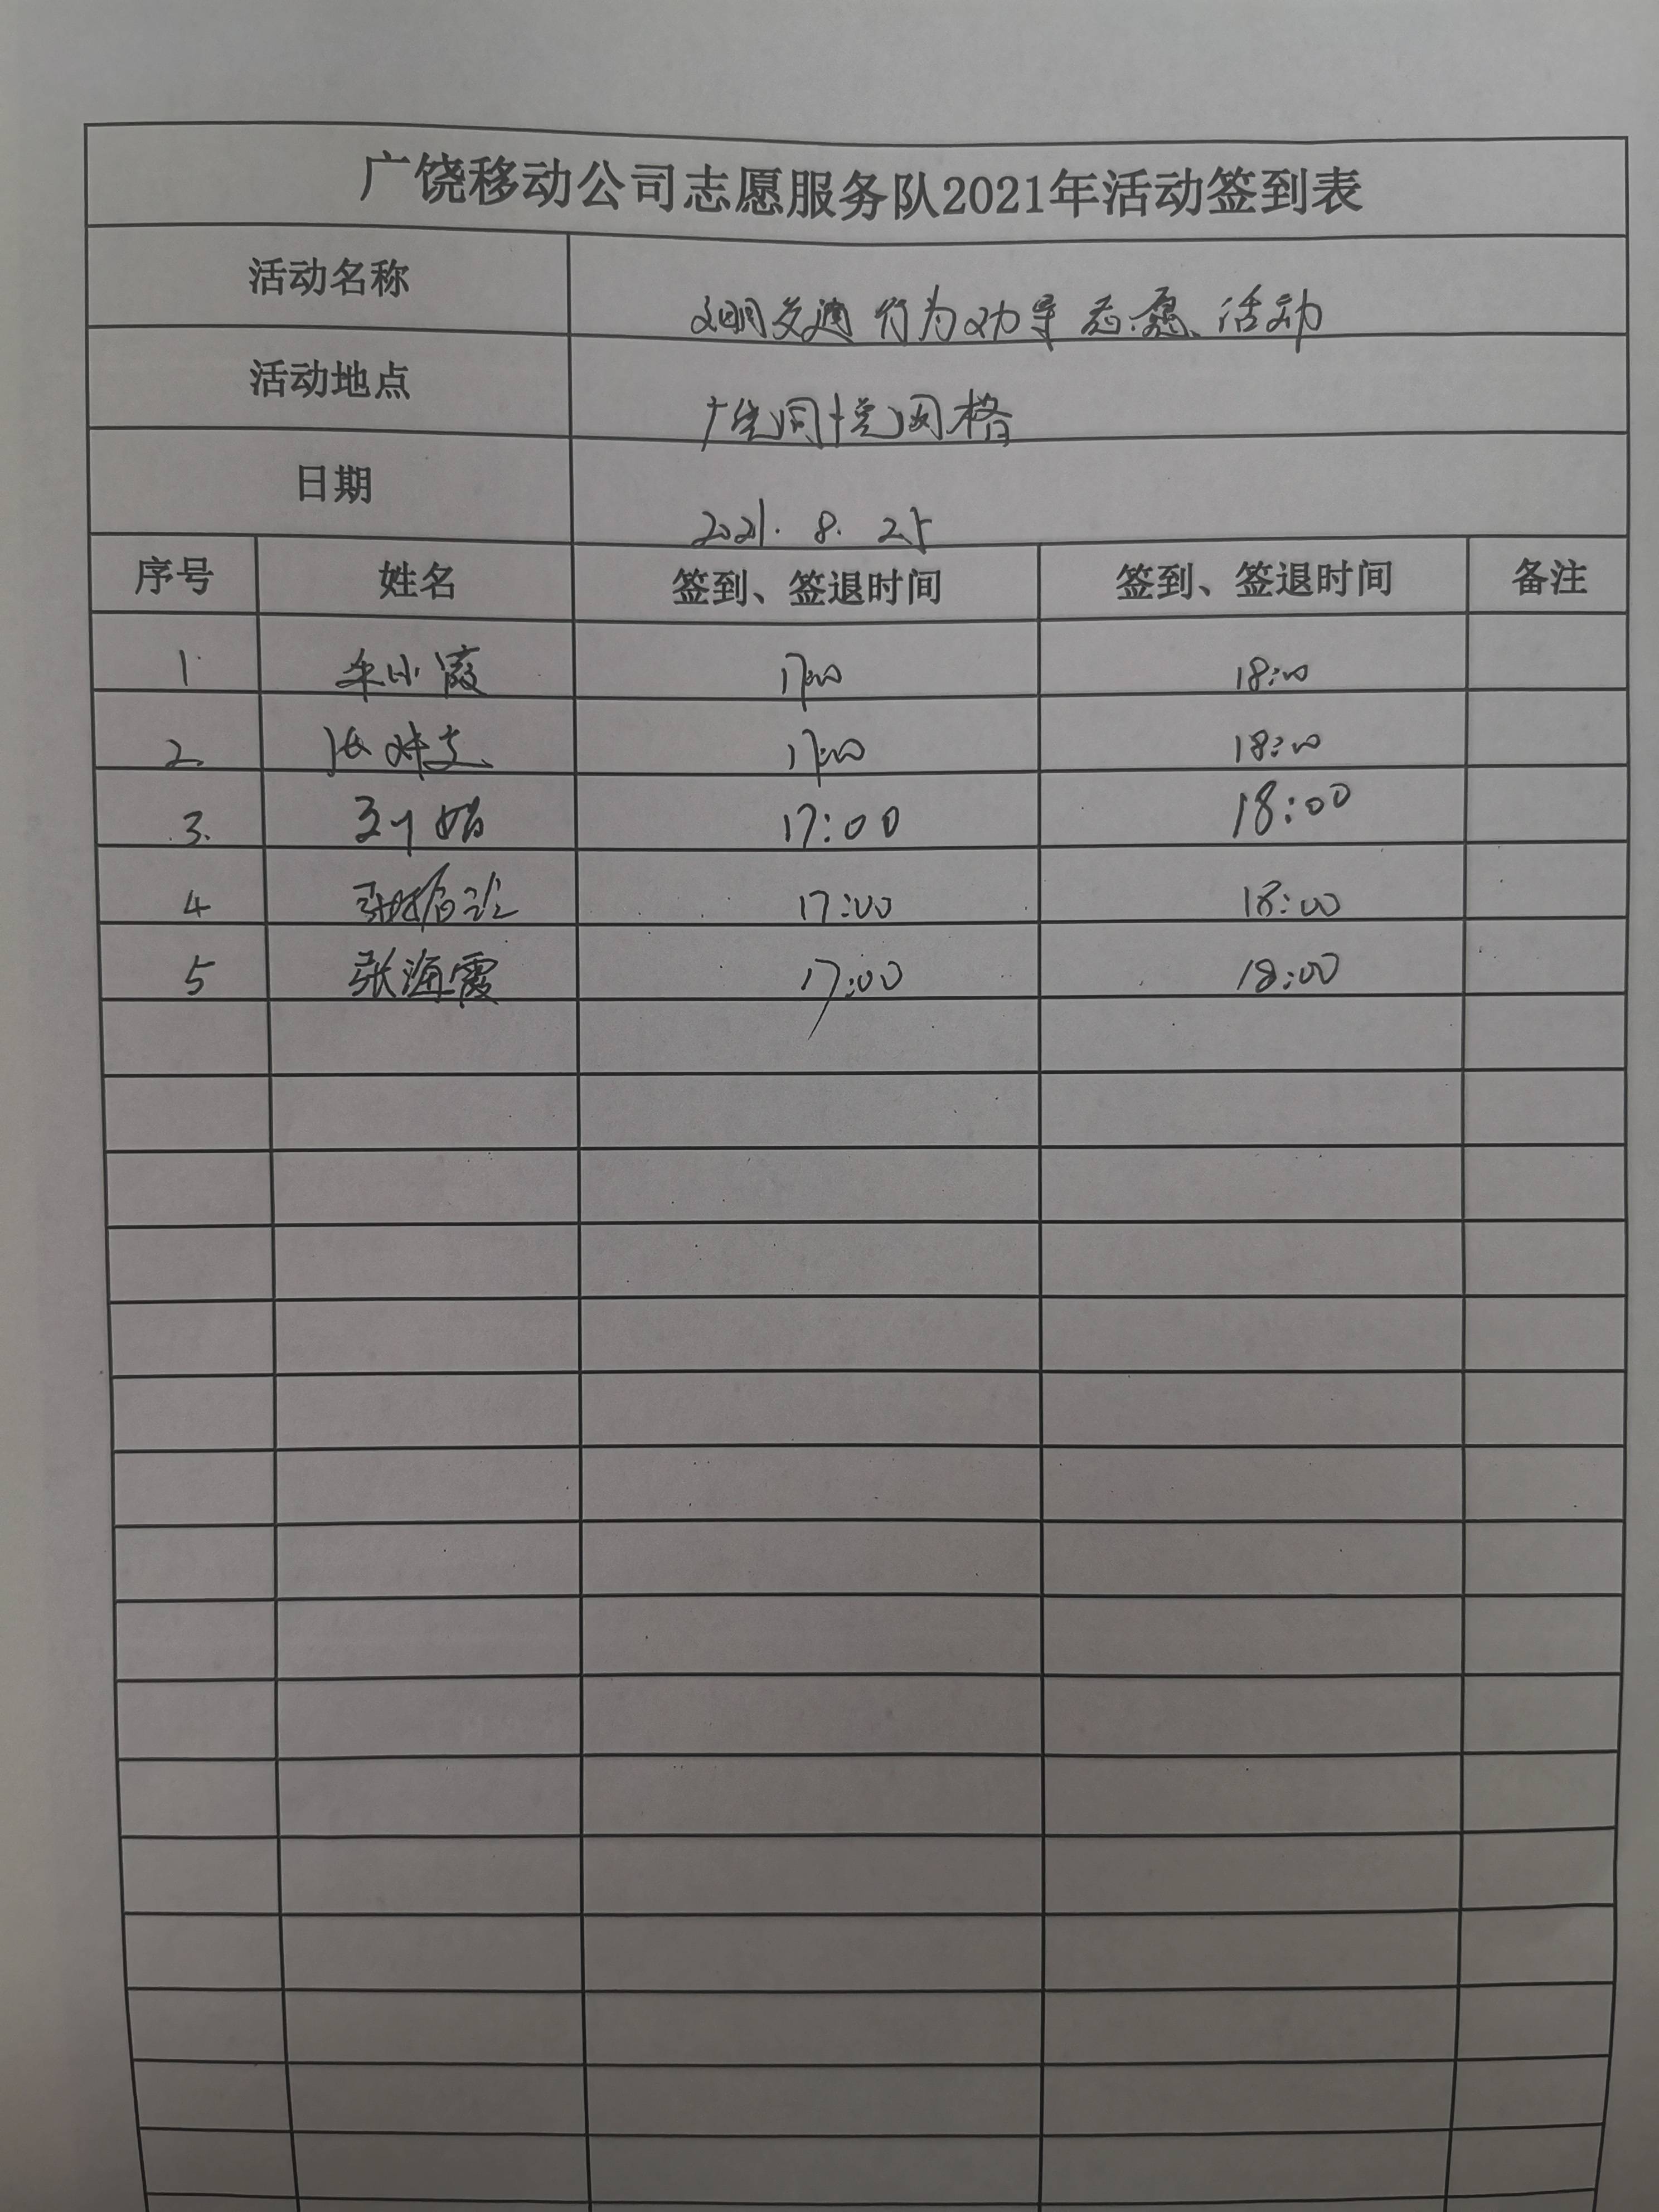 广饶移动公司志愿服务队2021年活动签到表
活动名称 文明交通行为劝导志愿活动
活动地点 广饶同悦网格
日期 2021.8.25
序号 姓名 签到、签退时间 签到、签退时间 备注
1 小霞 17:00 18:00
2 17:00 18:00
3 17:00 18:00
4 17:00 18:00
5 张海霞 17:00 18:00